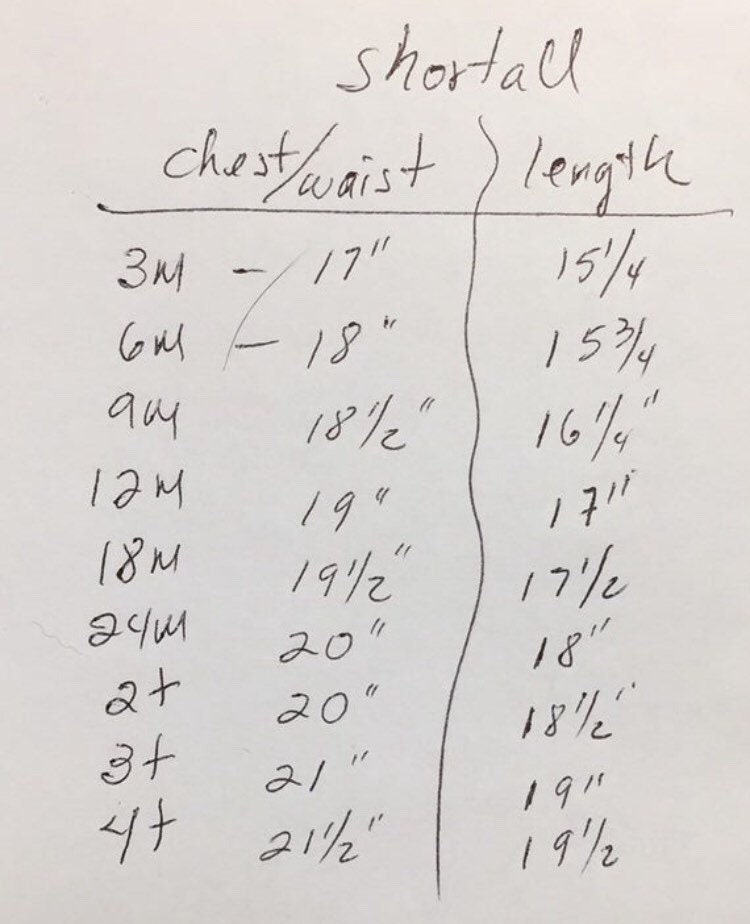 shortall
chest/waist length
3M - 17" 15 1/4
6M - 18" 15 3/4
9M 18 1/2" 16 1/4"
12M 19" 17"
18M 19 1/2" 17 1/2
24M 20" 18"
2t 20" 18 1/2"
3t 21" 19"
4t 21 1/2" 19 1/2